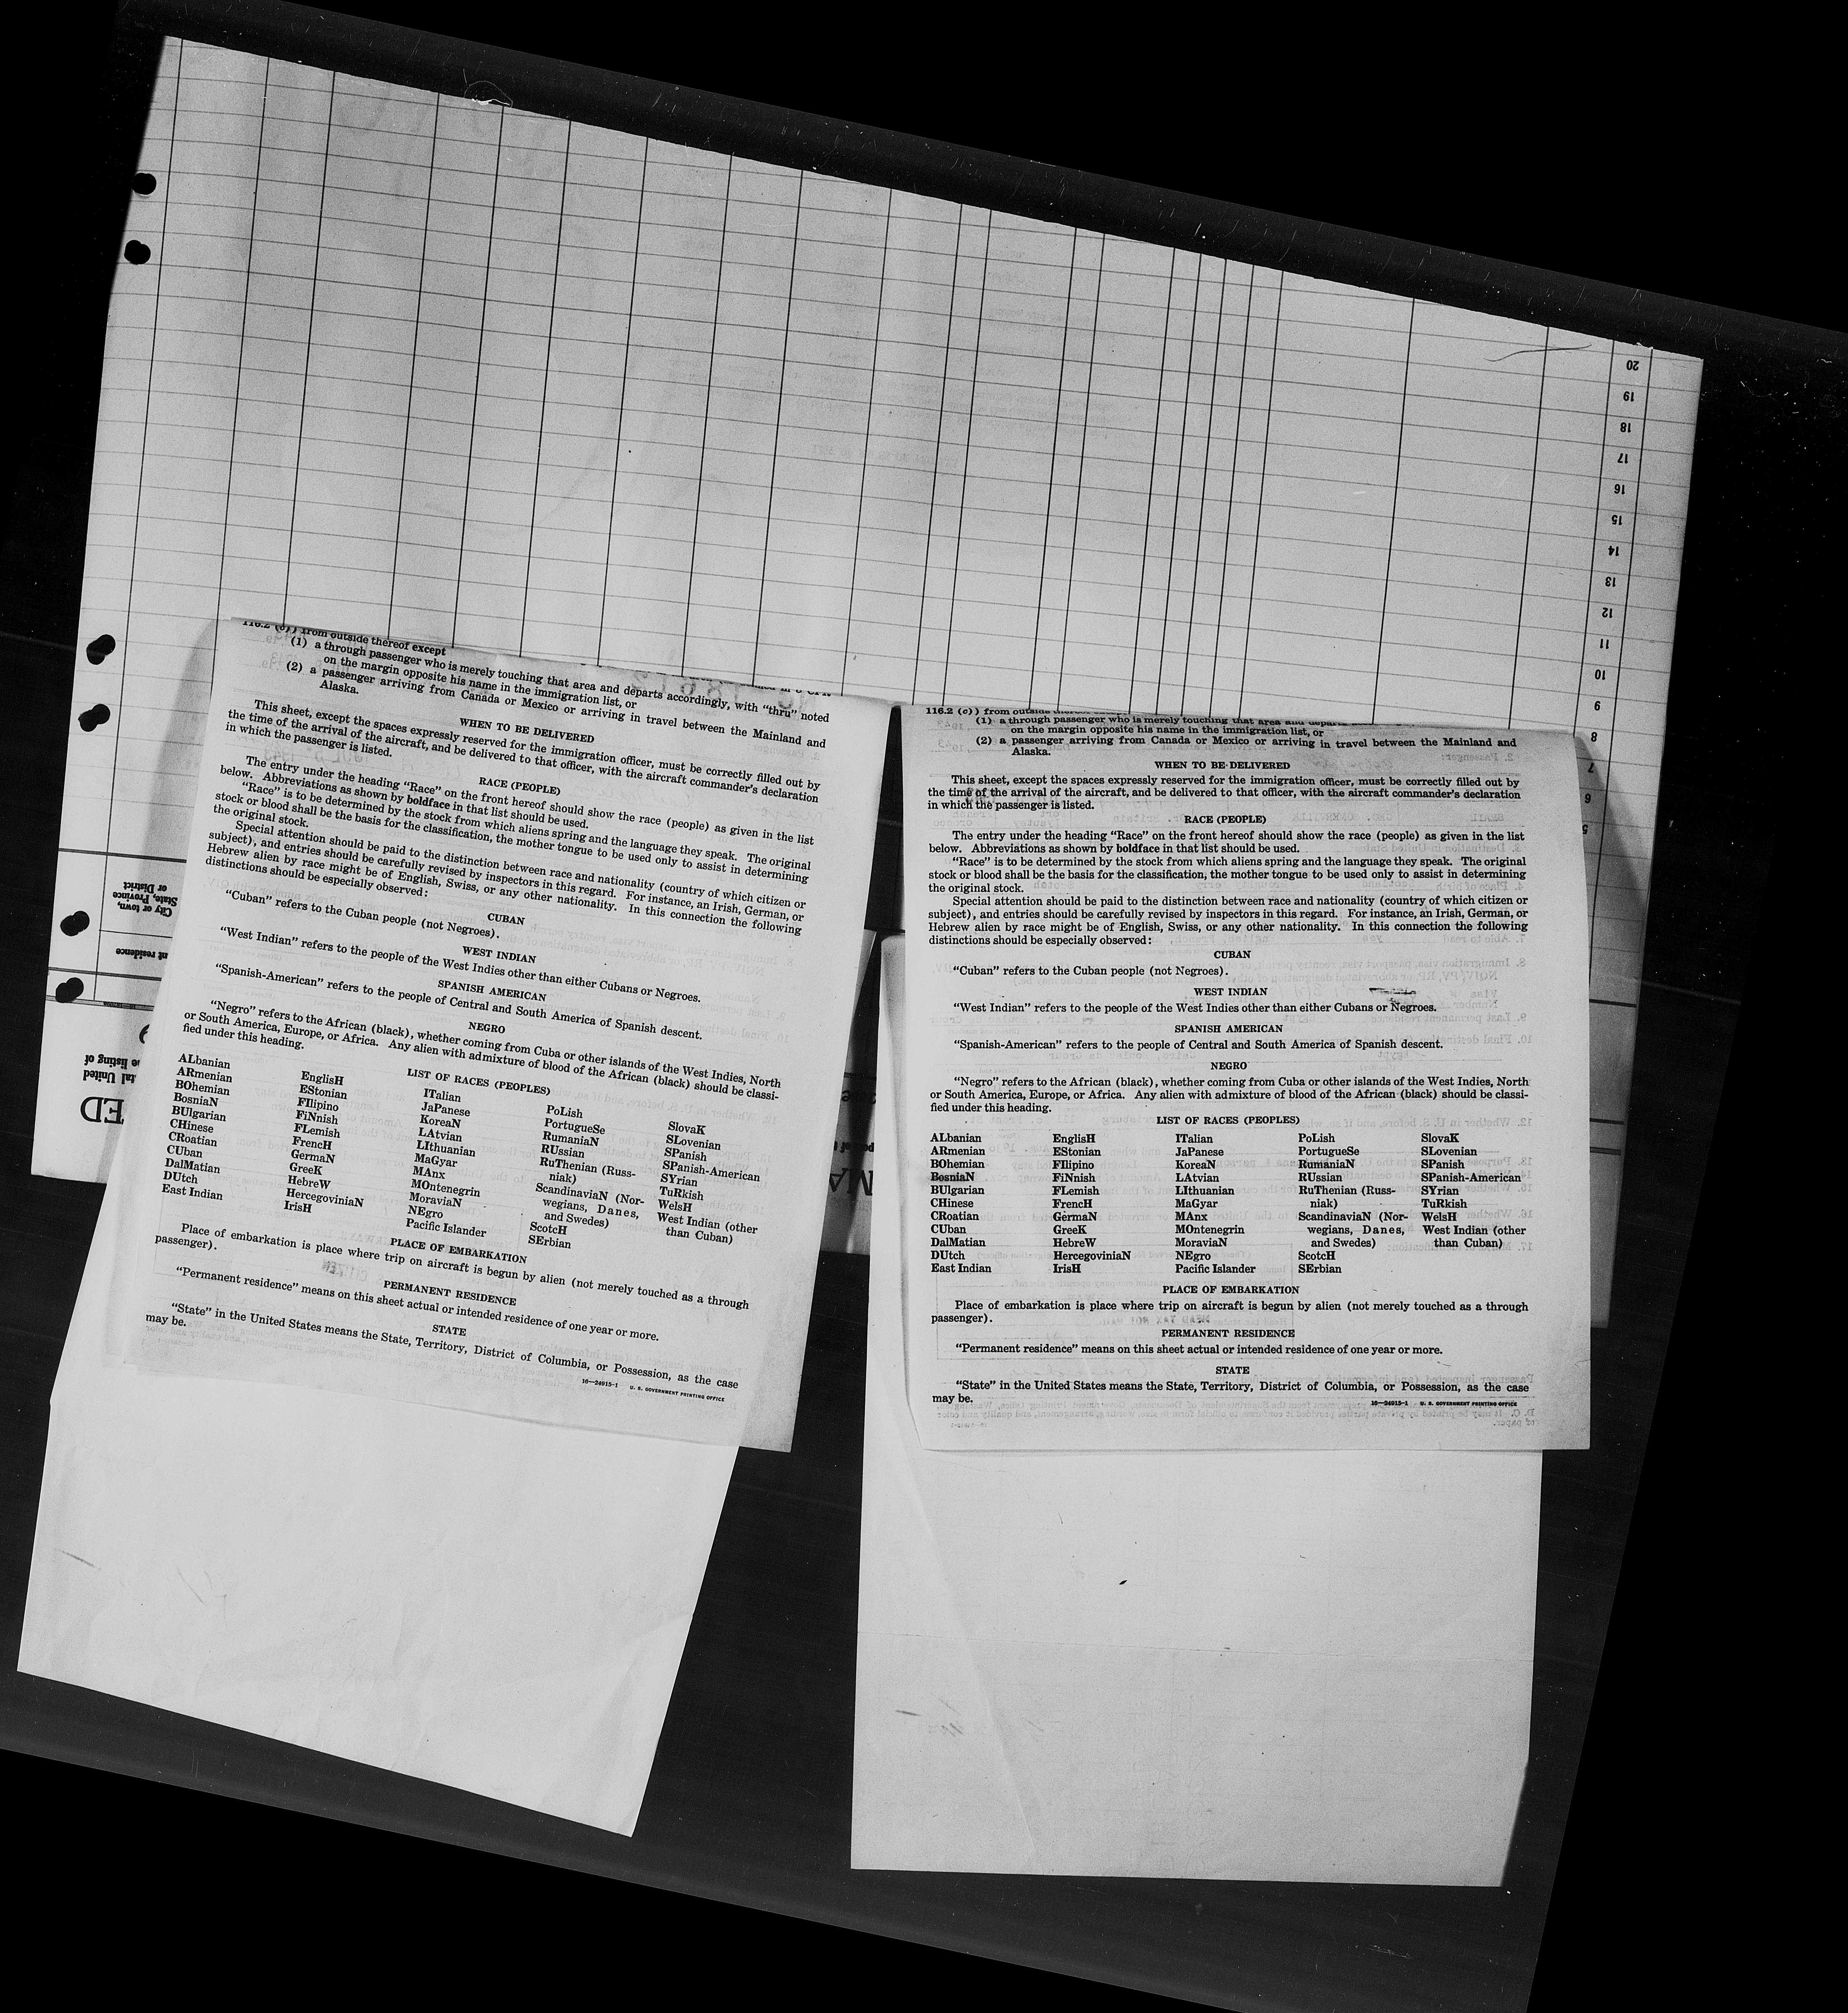 20
19
18
17
16
15
14
13
12
11
10
9
8
7
6
5
City or town,
State, Province,
or District
nt residence
tal United
e listing of
ED
MA
116.2 (c)) from outside thereof except
(1) a through passenger who is merely touching that area and departs accordingly, with "thru" noted
on the margin opposite his name in the immigration list, or
(2) a passenger arriving from Canada or Mexico or arriving in travel between the Mainland and
Alaska.
WHEN TO BE DELIVERED
This sheet, except the spaces expressly reserved for the immigration officer, must be correctly filled out by
the time of the arrival of the aircraft, and be delivered to that officer, with the aircraft commander's declaration
in which the passenger is listed.
RACE (PEOPLE)
The entry under the heading "Race" on the front hereof should show the race (people) as given in the list
below. Abbreviations as shown by boldface in that list should be used.
"Race" is to be determined by the stock from which aliens spring and the language they speak. The original
stock or blood shall be the basis for the classification, the mother tongue to be used only to assist in determining
the original stock.
Special attention should be paid to the distinction between race and nationality (country of which citizen or
subject), and entries should be carefully revised by inspectors in this regard. For instance, an Irish, German, or
Hebrew alien by race might be of English, Swiss, or any other nationality. In this connection the following
distinctions should be especially observed:
CUBAN
"Cuban" refers to the Cuban people (not Negroes).
WEST INDIAN
"West Indian" refers to the people of the West Indies other than either Cubans or Negroes.
SPANISH AMERICAN
"Spanish-American" refers to the people of Central and South America of Spanish descent.
NEGRO
"Negro" refers to the African (black), whether coming from Cuba or other islands of the West Indies, North
or South America, Europe, or Africa. Any alien with admixture of blood of the African (black) should be classi-
fied under this heading.
LIST OF RACES (PEOPLES)
ALbanian
ARmenian
BOhemian
BosniaN
BUlgarian
CHinese
CRoatian
CUban
DalMatian
DUtch
East Indian
EnglisH
EStonian
FIlipino
FiNnish
FLemish
FrencH
GermaN
GreeK
HebreW
HercegoviniaN
IrisH
ITalian
JaPanese
KoreaN
LAtvian
LIthuanian
MaGyar
MAnx
MOntenegrin
MoraviaN
NEgro
Pacific Islander
PoLish
PortugueSe
RumaniaN
RUssian
RuThenian (Russ-
niak)
ScandinaviaN (Nor-
wegians, Danes,
and Swedes)
ScotcH
SErbian
SlovaK
SLovenian
SPanish
SPanish-American
SYrian
TuRkish
WelsH
West Indian (other
than Cuban)
PLACE OF EMBARKATION
Place of embarkation is place where trip on aircraft is begun by alien (not merely touched as a through
passenger).
PERMANENT RESIDENCE
"Permanent residence" means on this sheet actual or intended residence of one year or more.
STATE
"State" in the United States means the State, Territory, District of Columbia, or Possession, as the case
may be.
16—24915-1 U. S. GOVERNMENT PRINTING OFFICE
116.2 (c)) from outside
(1) a through passenger who is merely touching that area and
on the margin opposite his name in the immigration list, or
(2) a passenger arriving from Canada or Mexico or arriving in travel between the Mainland and
Alaska.
WHEN TO BE DELIVERED
This sheet, except the spaces expressly reserved for the immigration officer, must be correctly filled out by
the time of the arrival of the aircraft, and be delivered to that officer, with the aircraft commander's declaration
in which the passenger is listed.
RACE (PEOPLE)
The entry under the heading "Race" on the front hereof should show the race (people) as given in the list
below. Abbreviations as shown by boldface in that list should be used.
"Race" is to be determined by the stock from which aliens spring and the language they speak. The original
stock or blood shall be the basis for the classification, the mother tongue to be used only to assist in determining
the original stock.
Special attention should be paid to the distinction between race and nationality (country of which citizen or
subject), and entries should be carefully revised by inspectors in this regard. For instance, an Irish, German, or
Hebrew alien by race might be of English, Swiss, or any other nationality. In this connection the following
distinctions should be especially observed:
CUBAN
"Cuban" refers to the Cuban people (not Negroes).
WEST INDIAN
"West Indian" refers to the people of the West Indies other than either Cubans or Negroes.
SPANISH AMERICAN
"Spanish-American" refers to the people of Central and South America of Spanish descent.
NEGRO
"Negro" refers to the African (black), whether coming from Cuba or other islands of the West Indies, North
or South America, Europe, or Africa. Any alien with admixture of blood of the African (black) should be classi-
fied under this heading.
LIST OF RACES (PEOPLES)
ALbanian
ARmenian
BOhemian
BosniaN
BUlgarian
CHinese
CRoatian
CUban
DalMatian
DUtch
East Indian
EnglisH
EStonian
FIlipino
FiNnish
FLemish
FrencH
GermaN
GreeK
HebreW
HercegoviniaN
IrisH
ITalian
JaPanese
KoreaN
LAtvian
LIthuanian
MaGyar
MAnx
MOntenegrin
MoraviaN
NEgro
Pacific Islander
PoLish
PortugueSe
RumaniaN
RUssian
RuThenian (Russ-
niak)
ScandinaviaN (Nor-
wegians, Danes,
and Swedes)
ScotcH
SErbian
SlovaK
SLovenian
SPanish
SPanish-American
SYrian
TuRkish
WelsH
West Indian (other
than Cuban)
PLACE OF EMBARKATION
Place of embarkation is place where trip on aircraft is begun by alien (not merely touched as a through
passenger).
PERMANENT RESIDENCE
"Permanent residence" means on this sheet actual or intended residence of one year or more.
STATE
"State" in the United States means the State, Territory, District of Columbia, or Possession, as the case
may be.
16—24915-1 U. S. GOVERNMENT PRINTING OFFICE